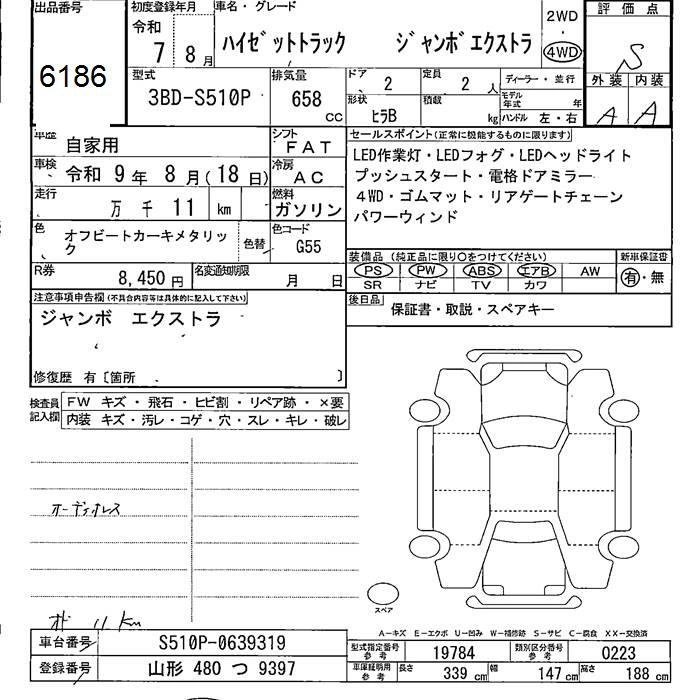 出品番号 初度登録年月 車名・グレード 2WD 評価点
6186 令和 7 8月 ハイゼットトラック ジャンボエクストラ 4WD S
型式 排気量 ドア 定員 ディーラー・並行 外装 内装
3BD-S510P 658 CC 2 2 人 モデル年式 年 A A
形状 ヒラB 積載 kg ハンドル 左・右
車歴 自家用 シフト FAT セールスポイント(正常に機能するものに限ります)
車検 令和 9年 8月(18日) 冷房 AC LED作業灯・LEDフォグ・LEDヘッドライト
プッシュスタート・電格ドアミラー
走行 万 千 11 km 燃料 ガソリン 4WD・ゴムマット・リアゲートチェーン
パワーウィンド
色 オフビートカーキメタリック 色替 色コード G55
装備品 (純正品に限り○をつけてください) 新車保証書
R券 8,450円 名変通知期限 月 日 PS PW ABS エアB AW 有・無
SR ナビ TV カワ
注意事項申告欄(不具合内容等は具体的に記入して下さい) 後日品 保証書・取説・スペアキー
ジャンボ エクストラ
修復歴 有〔箇所 〕
検査員記入欄 FW キズ・飛石・ヒビ割・リペア跡・×要
内装 キズ・汚レ・コゲ・穴・スレ・キレ・破レ
オーディオレス
スペア
11 Km
A-キズ E-エクボ U-凹み W-補修跡 S-サビ C-腐食 XX-交換済
車台番号 S510P-0639319 型式指定番号 参考 19784 類別区分番号 参考 0223
登録番号 山形 480 つ 9397 車庫証明用 参考 長さ 339 cm 幅 147 cm 高さ 188 cm